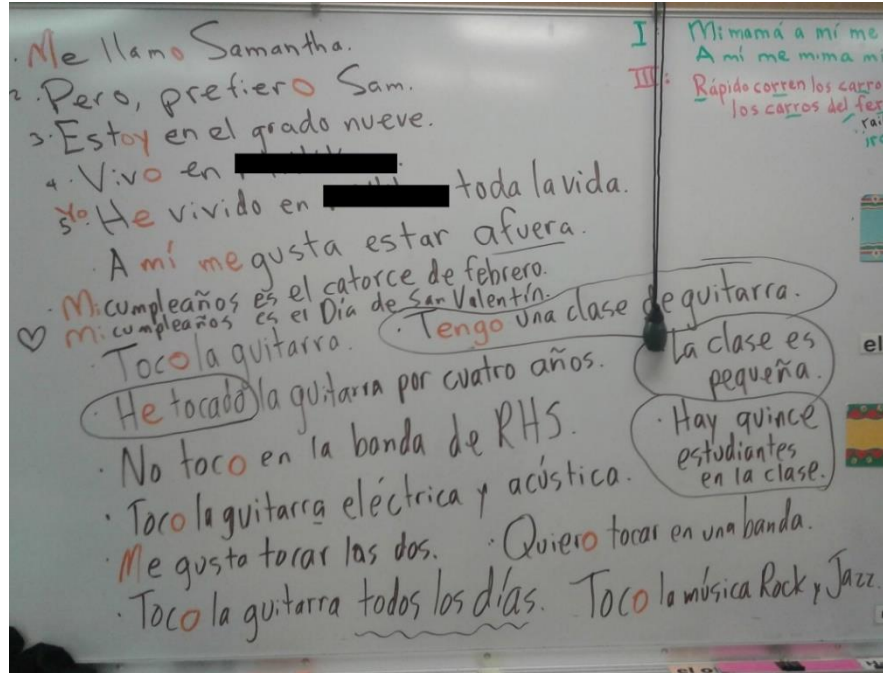 1. Me llamo Samantha.
2. Pero, prefiero Sam.
3. Estoy en el grado nueve.
4. Vivo en
5. Yo He vivido en toda la vida.
· A mí me gusta estar afuera.
· Mi cumpleaños es el catorce de febrero.
♡ Mi cumpleaños es el Día de San Valentín.
· Tengo una clase de guitarra.
· Toco la guitarra.
· La clase es
pequeña.
· He tocado la guitarra por cuatro años.
· Hay quince
estudiantes
en la clase.
· No toco en la banda de RHS.
· Toco la guitarra eléctrica y acústica.
· Me gusta tocar las dos.
· Quiero tocar en una banda.
· Toco la guitarra todos los días.
Toco la música Rock y Jazz.
I: Mi mamá a mí me
A mí me mima mi
III: Rápido corren los carro
los carros del fer
el